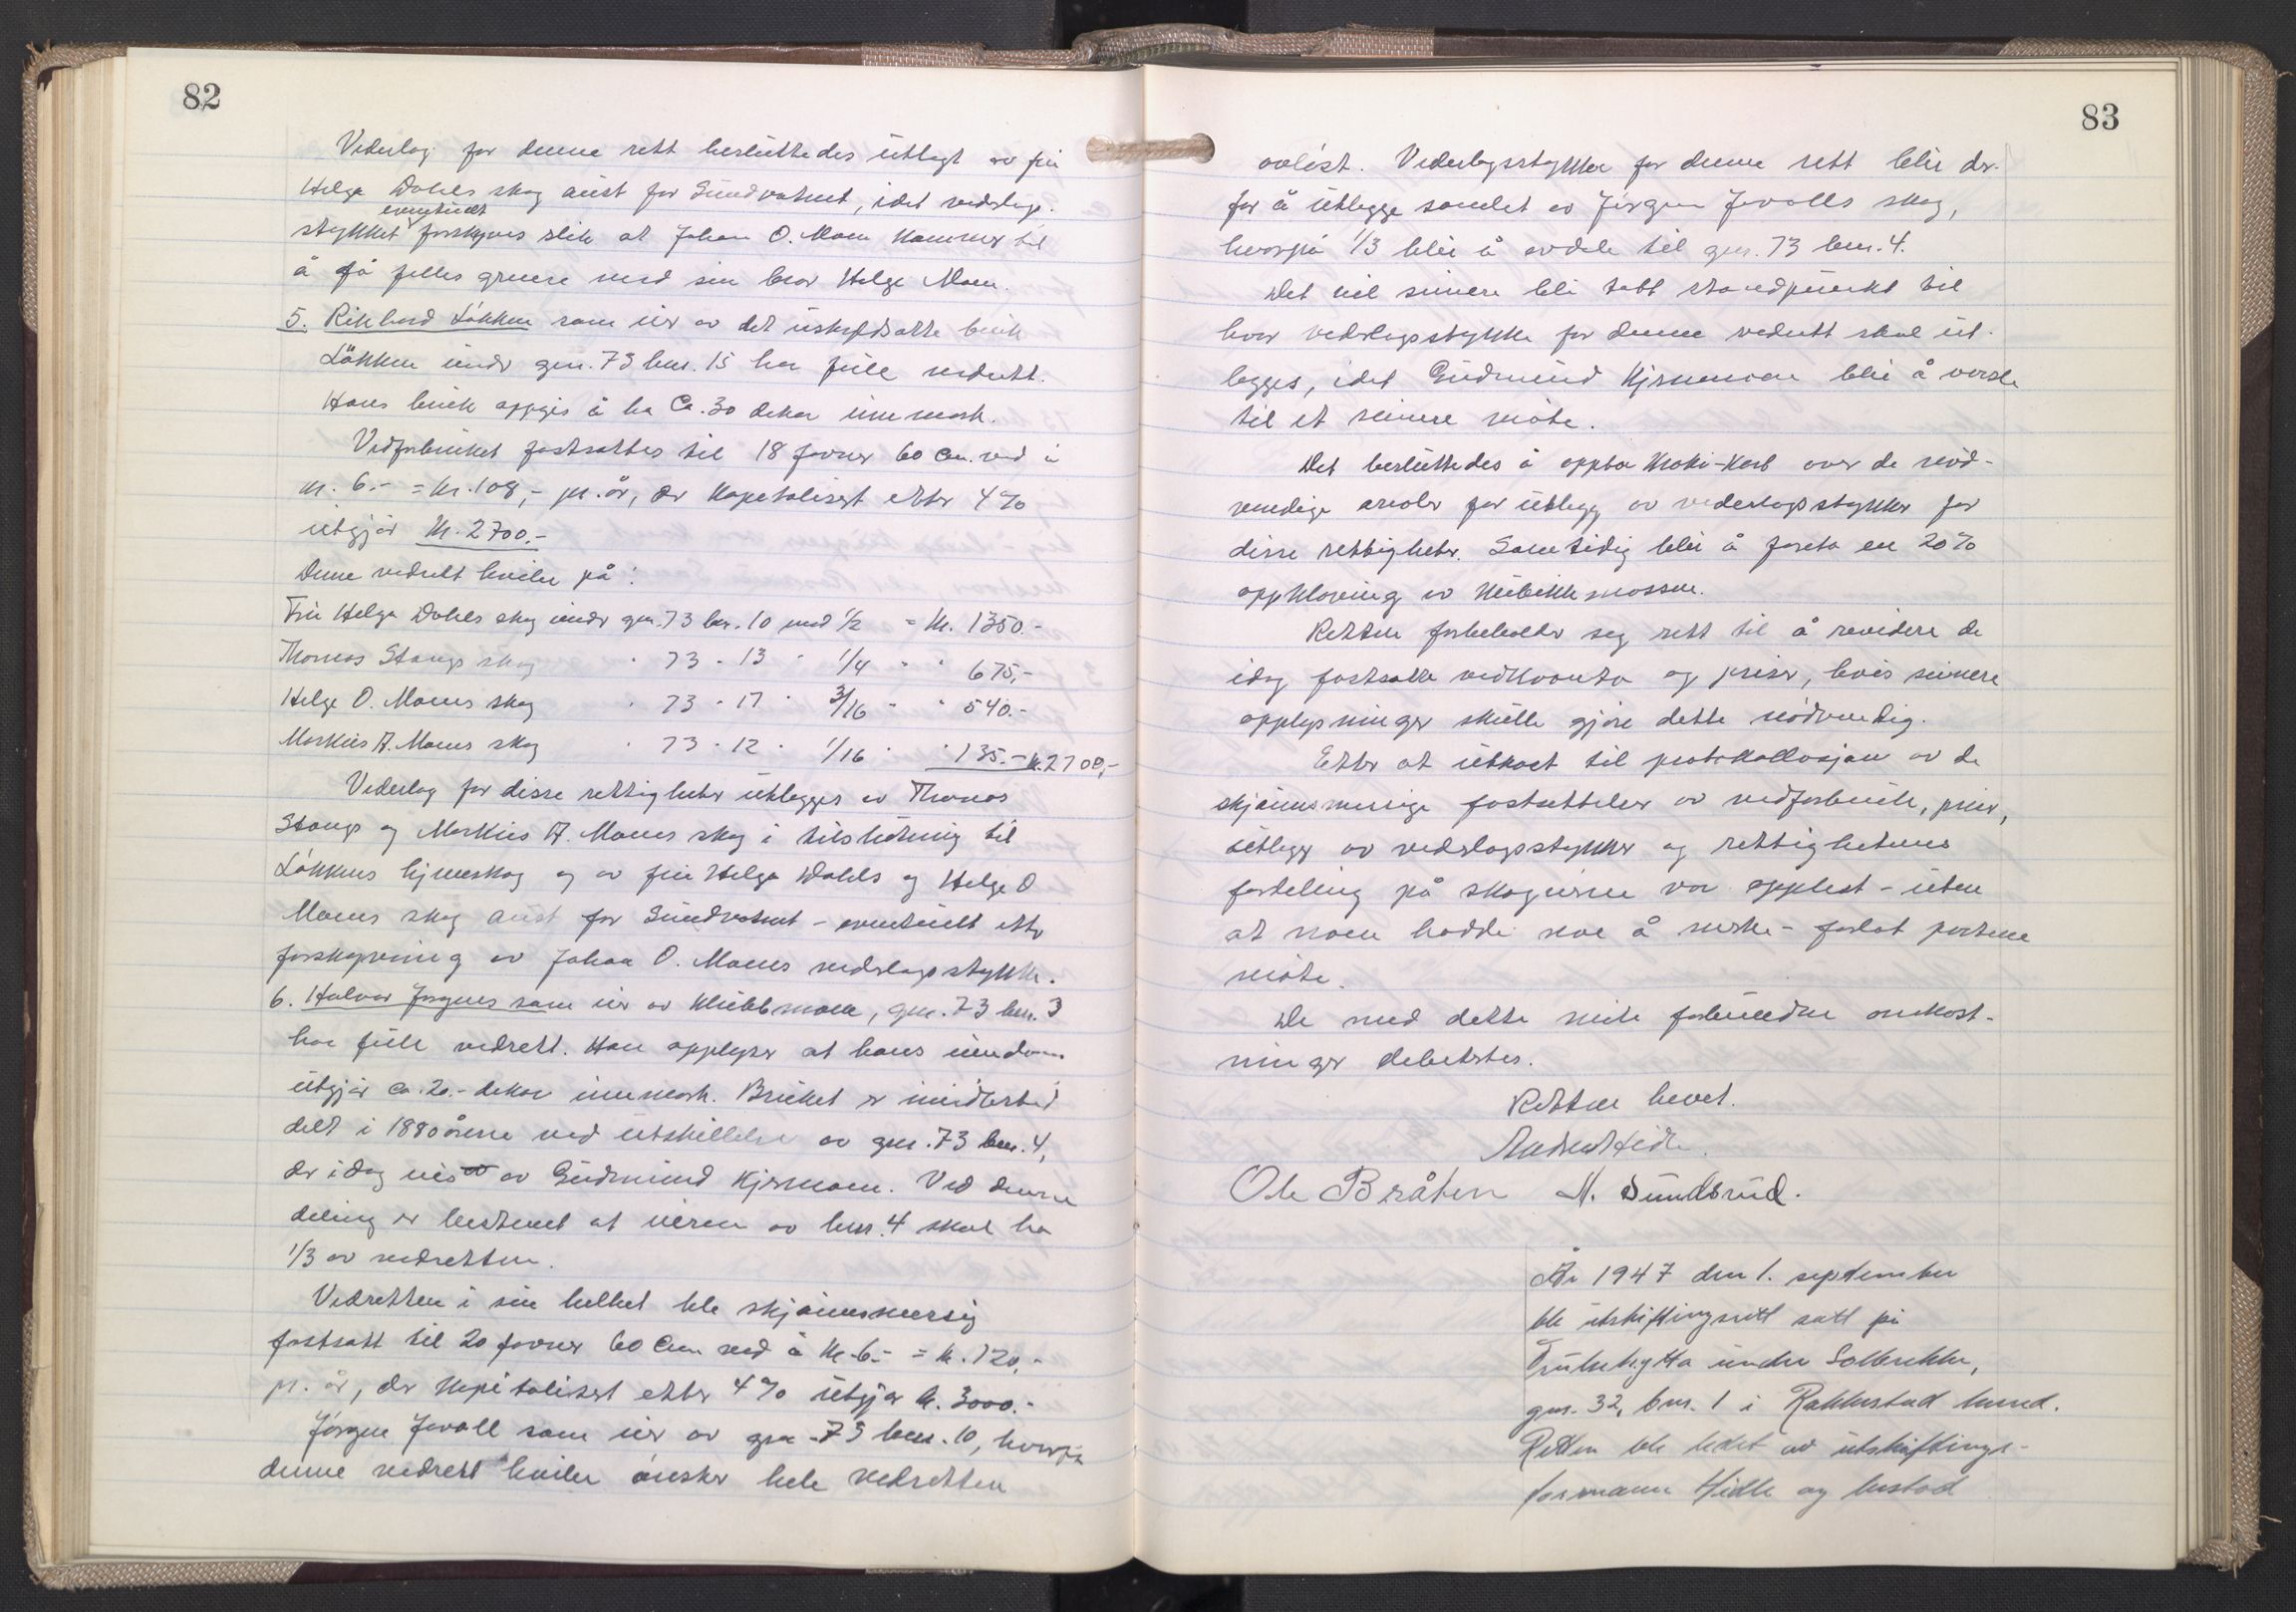 82
Vederlag for denne rett besluttedes utlagt av fru
Helga Dahls skog aust for Sundvatnet, idet vederlags-
eventuelt
stykket forskyves slik at Johan O. Moen kommer til
å få felles grense med sin bror Helge Moen.
5. Rikhard Løkken som eier av det uskyldsatte bruk
Løkken under gnr. 73 bnr. 15 har full vedrett.
Hans bruk oppgis å ha ca. 30 dekar innmark.
Vedforbruket fastsattes til 18 favner 60 cm. ved à
kr. 6.- = kr. 108,- pr. år, der kapitalisert etter 4%
utgjør kr. 2700.-
Denne vedrett hviler på:
Fru Helga Dahls skog under gnr. 73 bnr. 10 med 1/2 = kr. 1350.-
Thomas Stangs skog " 73 " 13 " 1/4 " " 675,-
Helge O. Moens skog " 73 " 17 " 3/16 " " 540.-
Markus A. Moens skog " 73 " 12 " 1/16 " " 135.- kr. 2700,-
Vederlag for disse rettigheter utlegges av Thomas
Stangs og Markus A. Moens skog i tilslutning til
Løkkens hjemskog og av fru Helga Dahls og Helge O
Moens skog aust for Sundvatnet - eventuelt etter
forskyvning av Johan O. Moens vederlagsstykke.
6. Halvor Jørgens som eier av Klubbmoen, gnr. 73 bnr. 3
har full vedrett. Han opplyser at hans eiendom
utgjør ca. 20.- dekar innmark. Bruket er imidlertid
delt i 1880 årene ved utskillelse av gnr. 73 bnr. 4,
der idag eies av Gudmund Kjernmoen. Ved denne
deling er bestemt at eieren av bnr. 4 skal ha
1/3 av vedretten.
Vedretten i sin helhet ble skjønnsmessig
fastsatt til 20 favner 60 cm ved à kr. 6.- = kr. 120,-
pr. år, der kapitalisert etter 4% utgjør kr. 3000.-
Jørgen Jevall som eier av gnr. 73 bnr. 10, hvorpå
denne vedrett hviler ønsker hele vedretten
83
avløst. Vederlagsstykker for denne rett blir der-
for å utlegge samlet av Jørgen Jevalls skog,
hvorpå 1/3 blir å avdele til gnr. 73 bnr. 4.
Det vil seinere bli tatt standpunkt til
hvor vederlagsstykke for denne vedrett skal ut-
legges, idet Gudmund Kjernmoen blir å varsle
til et seinere møte.
Det besluttedes å oppta kroki-kart over de nød-
vendige arealer for utlegg av vederlagsstykker for
disse rettigheter. Samtidig blir å foreta en 20%
oppklaving av kubikkmassen.
Retten forbeholder seg rett til å revidere de
idag fastsatte vedkvanta og priser, hvis seinere
opplysninger skulle gjøre dette nødvendig.
Etter at utkast til protokollasjon av de
skjønnsmessige fastsettelser av vedforbruk, priser,
utlegg av vederlagsstykker og rettighetens
fordeling på skogeierne var opplest - uten
at noen hadde noe å merke - forlot partene
møte.
De med dette møte forbundne omkost-
ninger debiteres.
Retten hevet.
Anders Hidle.
Ole Bråten M. Sundbrud.
År 1947 den 1. september
ble utskiftingsrett satt på
under Solbrekke,
gnr. 32, bnr. 1 i Rakkestad herred.
Retten ble ledet av utskiftings-
formann Hidle og bestod